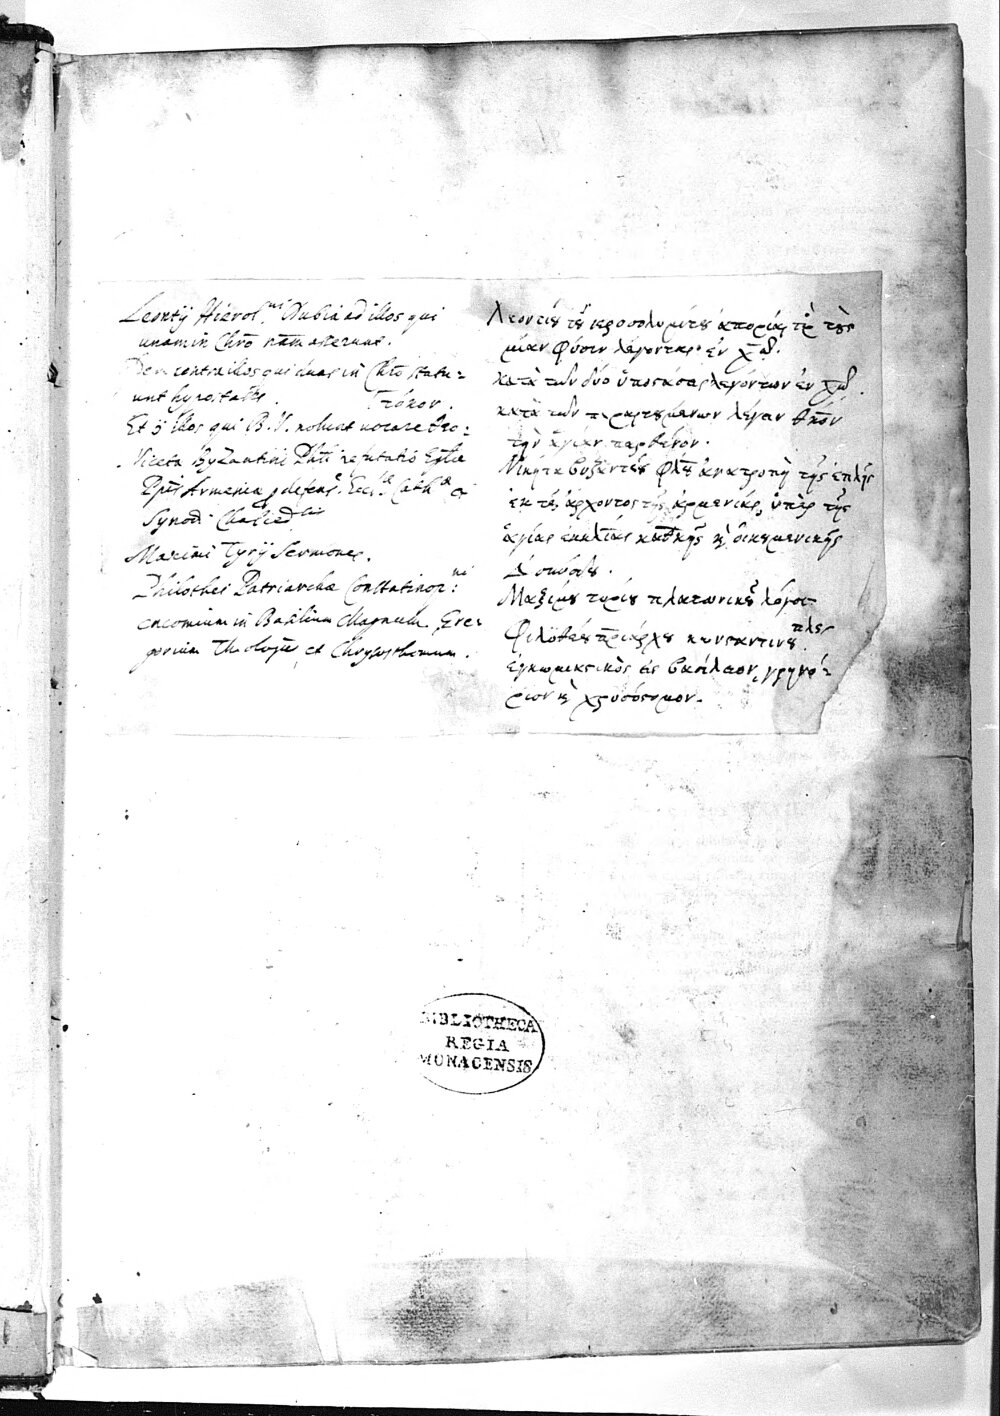 Leontij Hierol.ni Dubia ad illos qui
unam in Chro nām asserunt.
Dem contra illos qui duas in Chro statu=
unt hypostases.
Et ɔ̄ illos qui B. V. nolunt vocare θεο=
τόκον.
Nicetæ Byzantini Phī refutatio Eplæ
Pp̄is Armeniæ, ꝓ defens.e Eccl.æ Cath.æ et
Synodi Chalced.nis
Maximi Tyrij Sermones.
Philothei Patriarchæ Constantinop.ni
encomium in Basilium Magnum, Gre=
gorium Theologū et Chrysostomum.
Λεοντίου τοῦ ἱεροσολυμίτου ἀπορίαι πρὸς τοὺς
μίαν φύσιν λέγοντας ἐν χω̄.
κατὰ τῶν δύο ὑποστάσεις λεγόντων ἐν χω̄.
κατὰ τῶν παραιτουμένων λέγειν θκ̄ον
τὴν ἁγίαν παρθένον.
Νικήτα βυζαντίου φιλ̄ου ἀνατροπὴ τῆς ἐπλῆς
ἐκ τοῦ ἄρχοντος τῆς ἀρμενίας, ὑπὲρ τῆς
ἁγίας ἐκκλησίας καθκῆς κὴ οἰκουμενικῆς
Δ συνόδου.
Μαξίμου τυρίου πλατωνικοῦ λόγοι
Φιλοθέου πριάρχου κωνσταντινουπλεως
ἐγκωμιαστικὸς εἰς βασίλειον, γρηγό=
ριον κὴ χρυσόστομον.
BIBLIOTHECA
REGIA
MONACENSIS